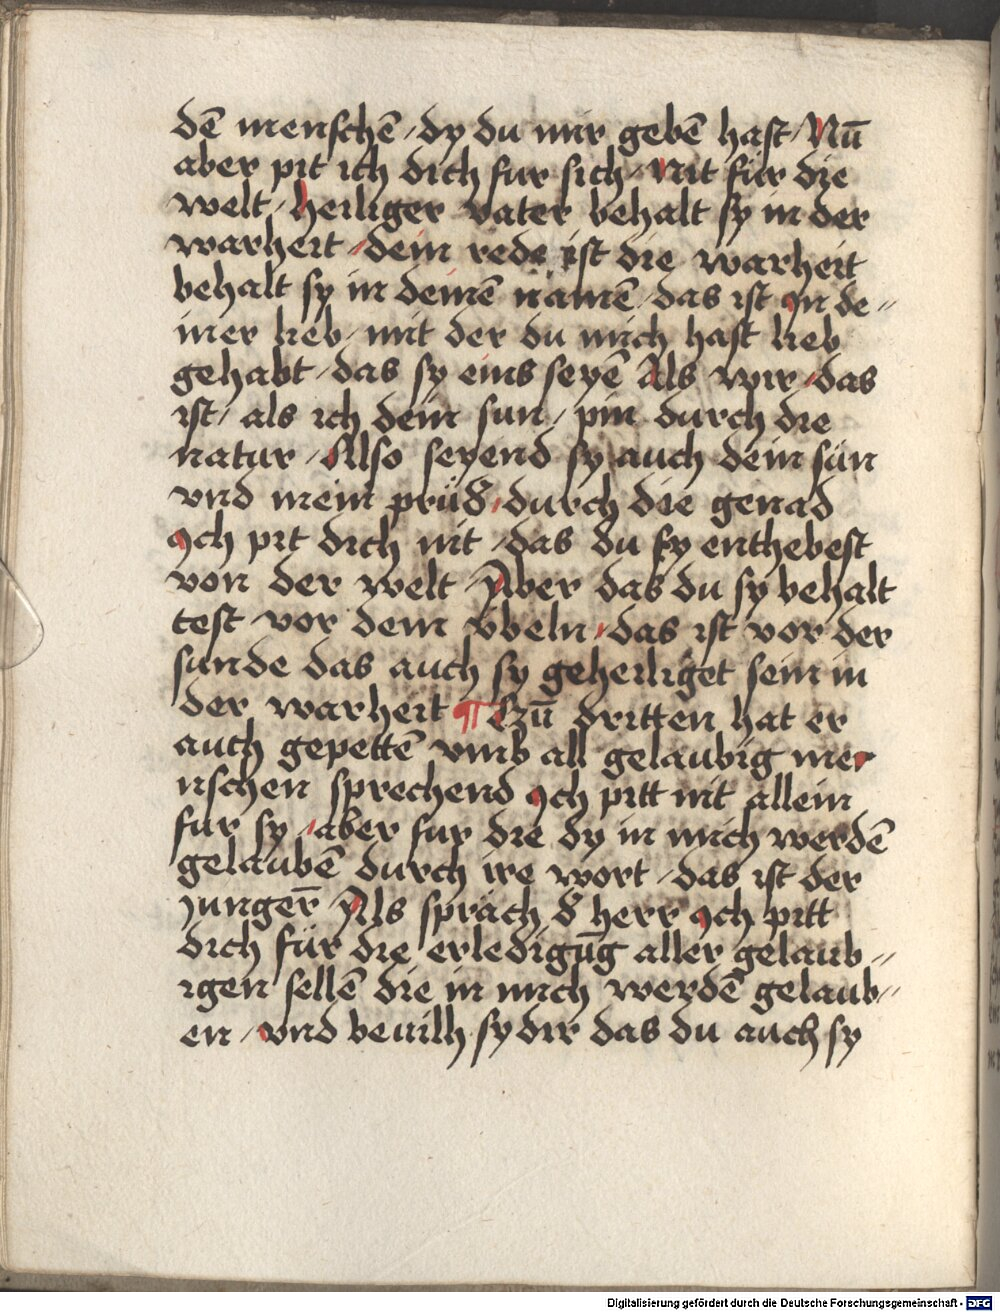 dē menschē / dy du mir gebē hast / Nū
aber pit ich dich fur sich / Nit für die
welt / heiliger vater behalt sy in der
warheit / dein rede ist die warheit
behalt sy in deinē namē / das ist In de〃
iner lieb / mit der du mich hast lieb
gehabt / das sy eins seyē Als wir / das
ist / als ich dein sun / pin durch die
natur / Also seyend sy auch dein sün
vnd mein prüd̄ / durch die genad
Ich pit dich nit / das du sy enthebest
von der welt / Aber das du sy behalt
test vor dem vbeln / das ist vor der
sunde das auch sy geheiliget sein in
der warheit ¶ Czū dritten hat er
auch gepettē vmb all gelaubig me
nschen sprechend Ich pitt nit allein
fur sy / aber fur die dy in mich werdē
gelaubē durch ire wort / das ist der
Junger̄ / Als spräch d̄ herr Ich pitt
dich für die erledigūg aller gelaub〃
igen sellē die in mich werdē gelaub〃
en / vnd beuilh sy dir das du auch sy
Digitalisierung gefördert durch die Deutsche Forschungsgemeinschaft - DFG